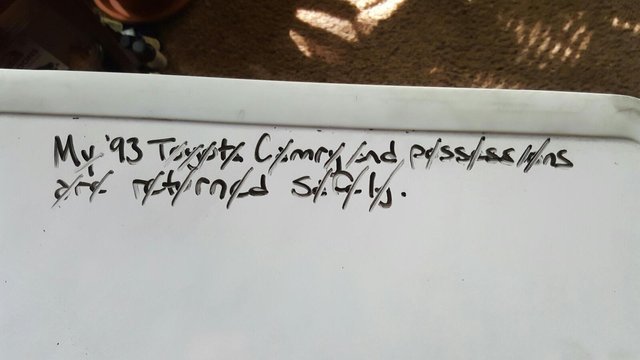 My '93 Toyota Camry and possessions
are returned safely.